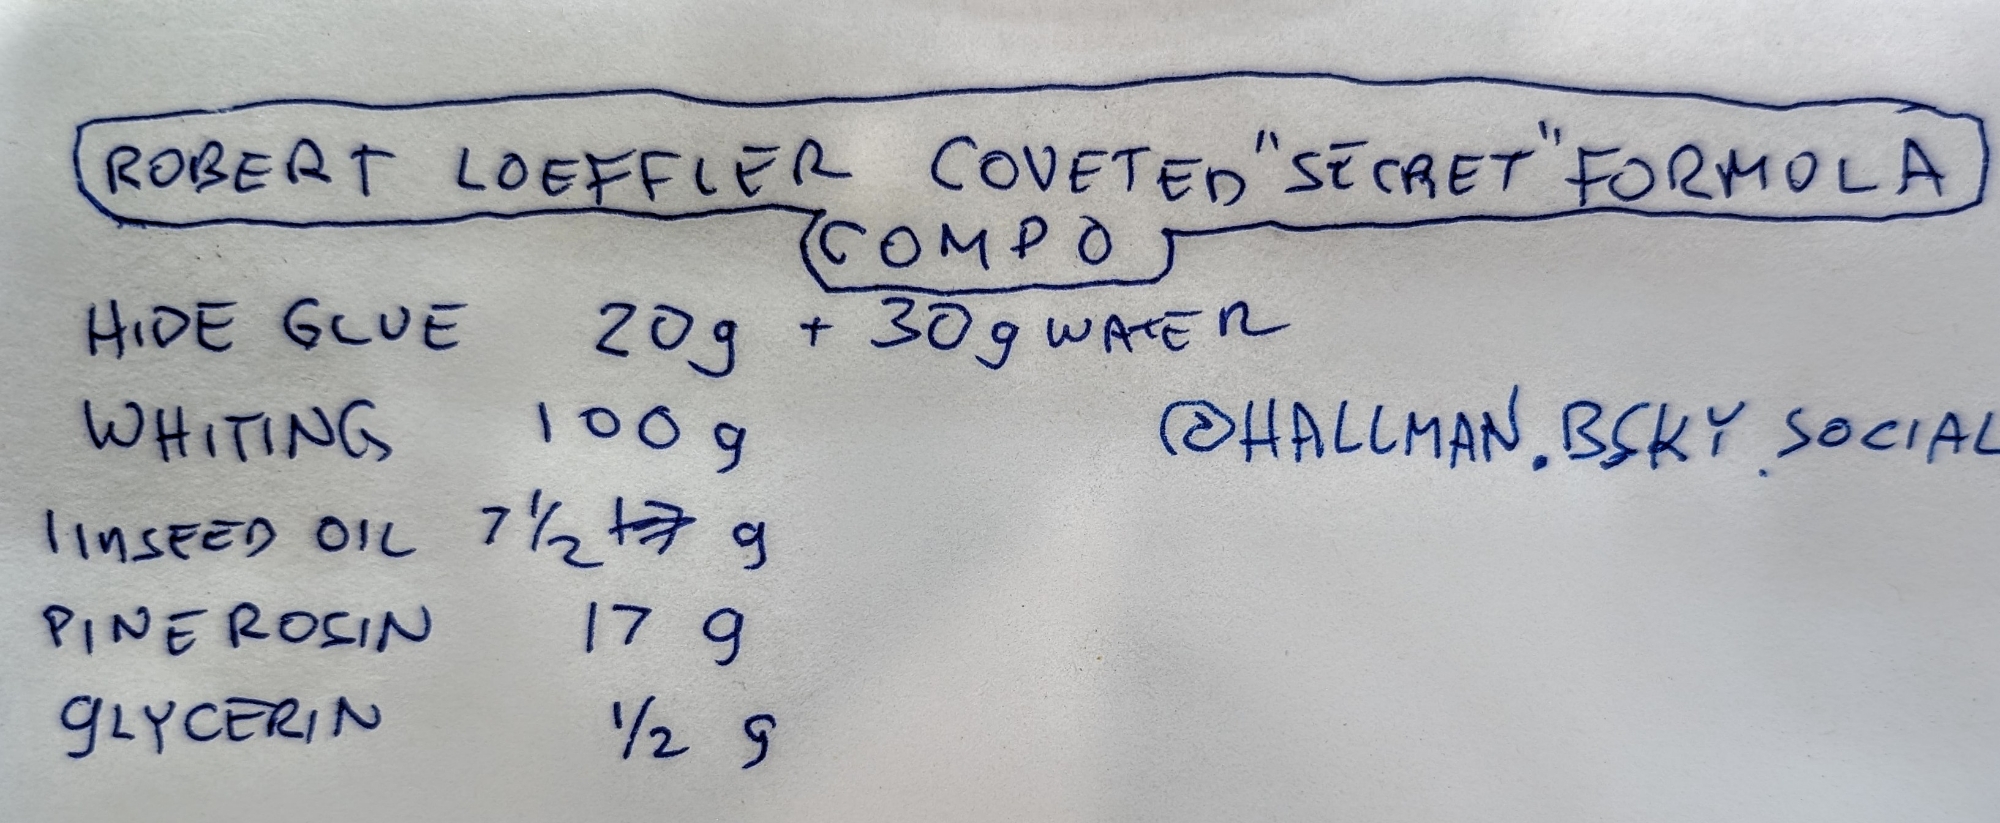 ROBERT LOEFFLER COVETED "SECRET" FORMOLA
COMPO
HIDE GLUE 20g + 30g WATER
WHITING 100 g
@HALLMAN.BSKY.SOCIAL
LINSEED OIL 7 1/2 g
PINE ROSIN 17 g
GLYCERIN 1/2 g